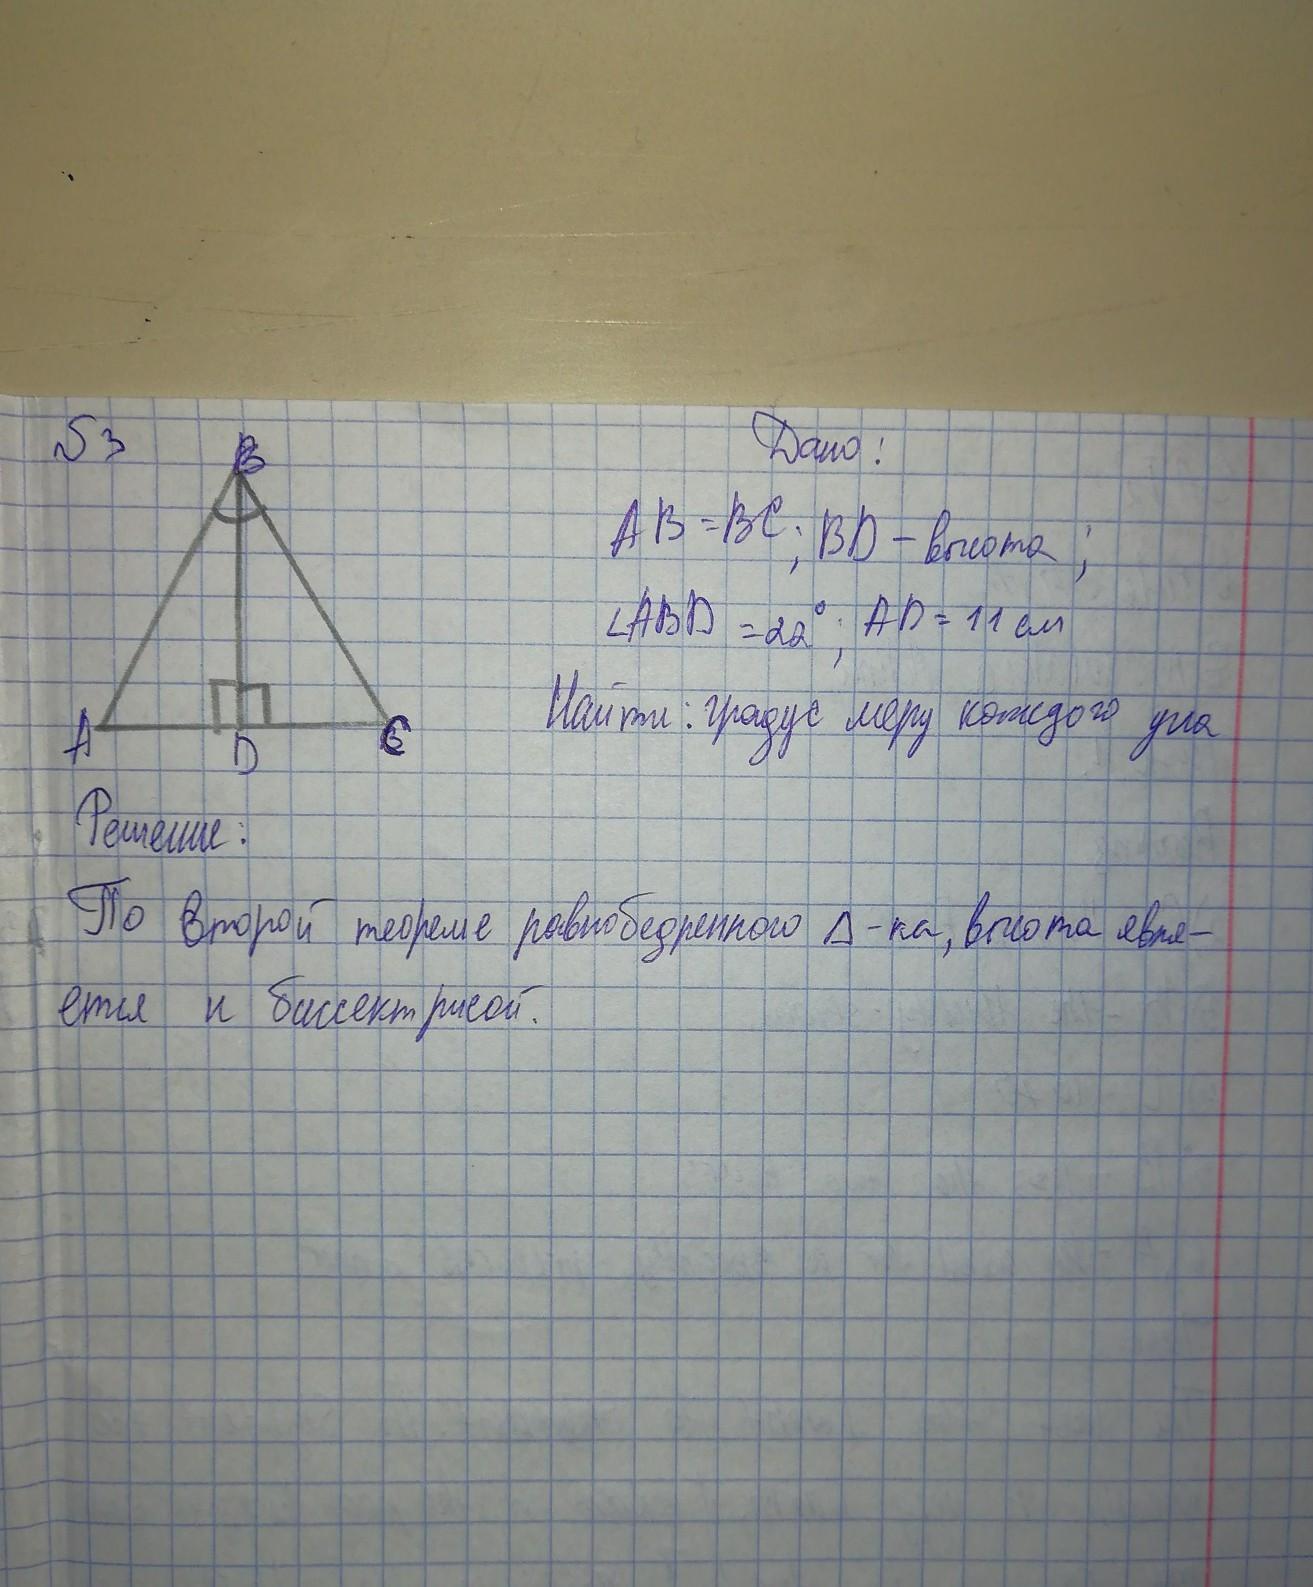 №3
B
A
D
C
Дано:
AB = BC; BD – высота;
∠ABD = 22°; AD = 11 см
Найти: градус меру каждого угла
Решение:
По второй теореме равнобедренного Δ-ка, высота явля-
ется и биссектрисой.